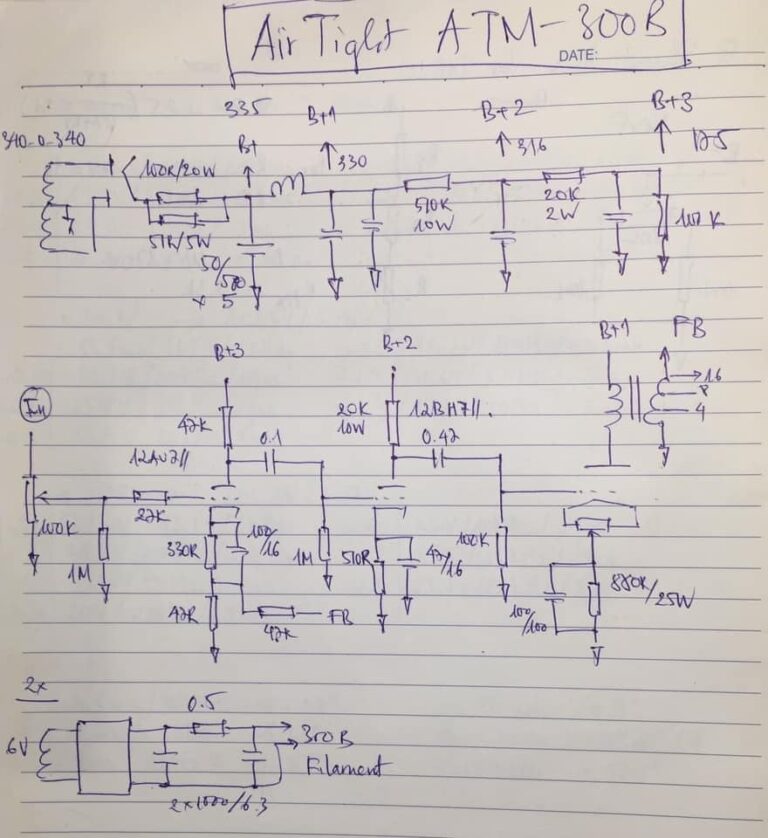 AirTight ATM-300B
DATE:
340-0-340
335
B+
B+1
330
B+2
316
B+3
175
100R/20W
51R/5W
50/500
x 5
510R
10W
20K
2W
100K
B+3
B+2
B+1
FB
16
8
4
In
47K
0.1
20K
10W
12BH7//.
0.47
12AU7//
100K
27K
1M
330R
100/
16
1M
510R
47/16
100K
880R/25W
100/100
47R
47K
FB
2x
6V
0.5
300B
Filament
2x1000/6.3